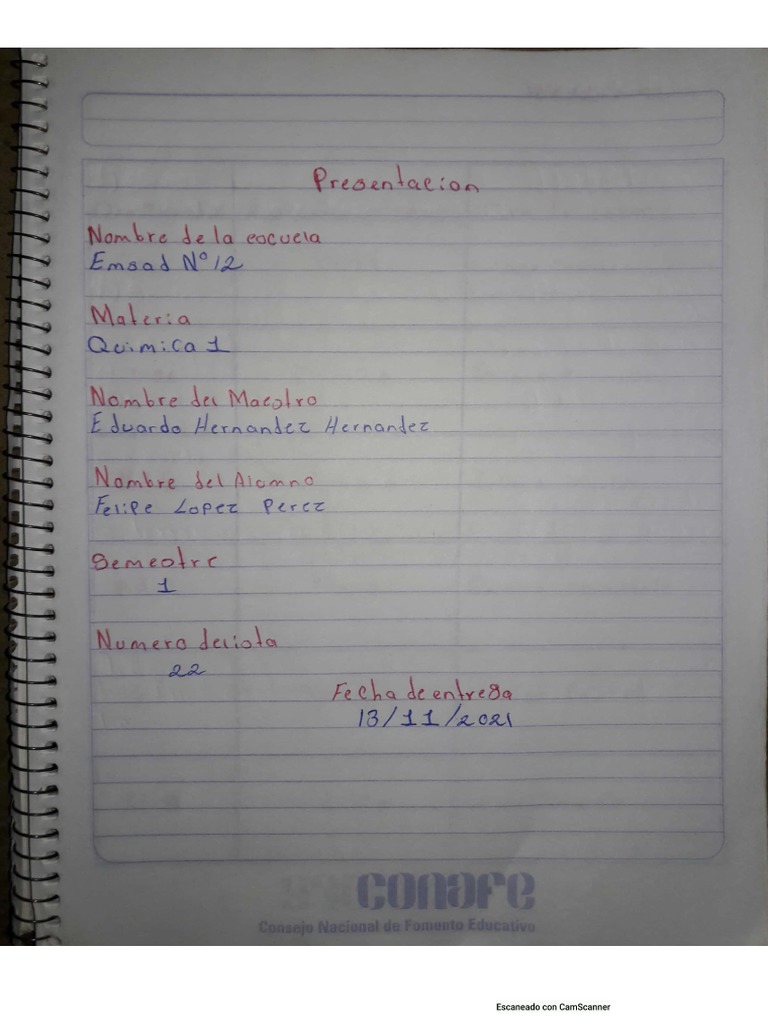 Presentacion
Nombre de la escuela
Emsad N° 12
Materia
Quimica 1
Nombre del Maestro
Eduardo Hernandez Hernandez
Nombre del Alumno
Felipe Lopez Perez
Semestre
1
Numero de lista
22
Fecha de entrega
13/11/2021
conafe
Consejo Nacional de Fomento Educativo
Escaneado con CamScanner